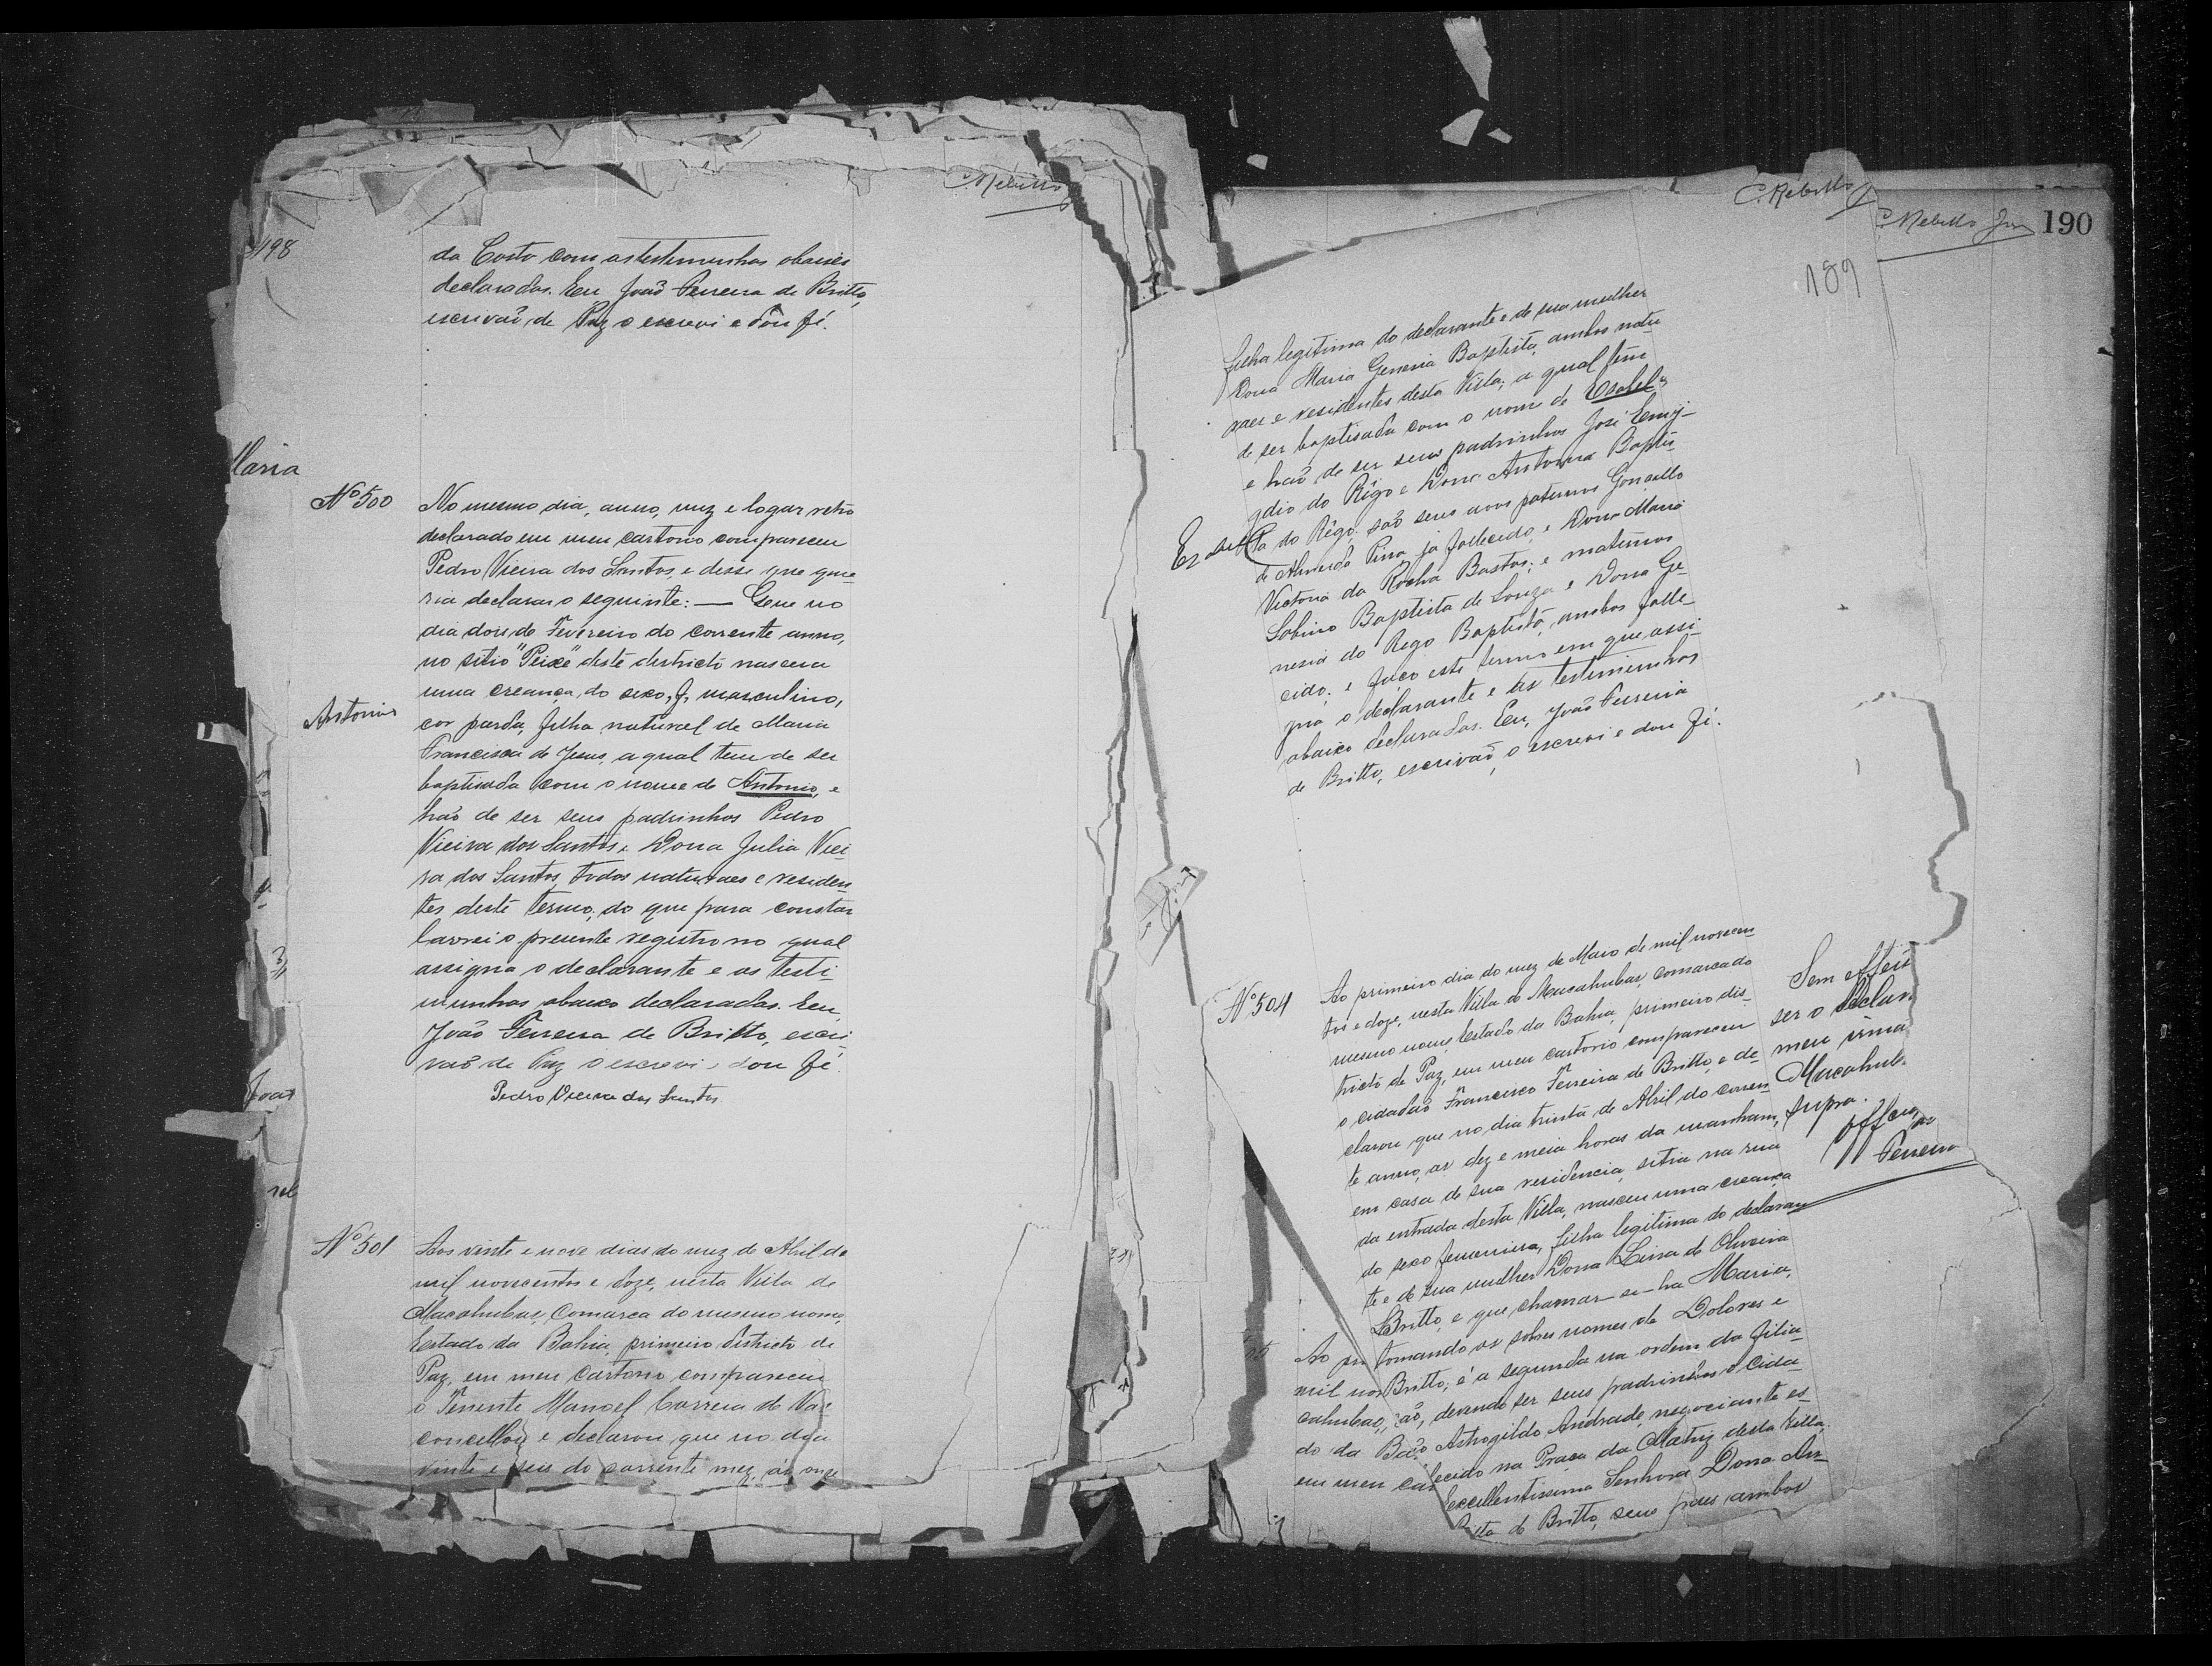 498
da Costa com as testemunhas abaixo
declaradas. Eu João Ferreira de Britto,
escrivaõ, de Paz o escrevi e dou fé.
Maria
Nº 500
No mesmo dia, anno, mez e logar retro
declarado em meu cartorio compareceu
Pedro Vieira dos Santos, e disse que que-
ria declarar o seguinte: — Que no
dia dois de Fevereiro do corrente anno,
no sitio "Peixe" deste districto nasceu
uma creança, do sexo, masculino,
Antonio
cor parda, filha natural de Maria
Francisca de Jesus, a qual tem de ser
baptisada com o nome de Antonio, e
haõ de ser seus padrinhos Pedro
Vieira dos Santos e Dona Julia Viei-
ra dos Santos, todos naturaes e residen-
tes deste termo, do que para constar
lavrei o presente registro no qual
assigna o declarante e as testi-
munhas abaixo declaradas. Eu,
João Ferreira de Britto, escri-
vaõ de Paz o escrevi e dou fé.
Pedro Vieira dos Santos
Nº 501
Aos vinte e nove dias do mez de Abril de
mil novecentos e doze, nesta Villa de
Macahubas, Comarca do mesmo nome,
Estado da Bahia, primeiro districto de
Paz, em meu cartorio compareceu
o Tenente Manoel Correia de Vas-
concellos e declarou que no dia
vinte e seis do corrente mez, as onze
C. Rebello
190
189
filha legitima do declarante e de sua mulher
Dona Maria Genesia Baptista, ambos natu-
raes e residentes desta Villa, a qual tem
de ser baptisada com o nome de Esabel
e haõ de ser seus padrinhos José Emy-
gdio do Rêgo e Dona Antonia Baptis-
ta do Rêgo, saõ seus avos paternos Gonsallo
de Almeida Pina, ja fallecido, e Dona Maria
Victoria da Rocha Bastos; e maternos
Sabino Baptista de Souza e Dona Ge-
nesia do Rego Baptista, ambos falle-
cido; e faço este termo em que assi-
gna o declarante e as testimunhas
abaixo declaradas. Eu, João Ferreira
de Britto, escrivaõ, o escrevi e dou fé.
Nº 504
Ao primeiro dia do mez de Maio de mil novecen-
tos e doze, nesta Villa de Macahubas, Comarca do
mesmo nome, Estado da Bahia, primeiro dis-
tricto de Paz, em meu cartorio compareceu
o cidadaõ Francisco Ferreira de Britto, e de-
clarou que no dia trinta de Abril do corren-
te anno, as dez e meia horas da manham,
em casa de sua residencia, sitia na rua
da entrada desta Villa, nasceu uma creança
do sexo femenino, filha legitima do declaran-
te e de sua mulher Dona Luisa de Oliveira
Britto, e que chamar-se-ha Maria,
tomando os sobres nomes de Dolores e
Britto; é a segunda na ordem da filia-
aõ, devendo ser seus padrinhos o Cida-
daõ Astrogildo Andrade, negociante es-
ecido na Praça da Matriz desta Villa,
Excellentissima Senhora Dona An-
Rita de Britto, seus paes ambos
Sem effeit
ser o declar
meu irma
Macahub
supra.
Ferreira
Ao
mil nov
cahubas,
do da Ba
em meu car